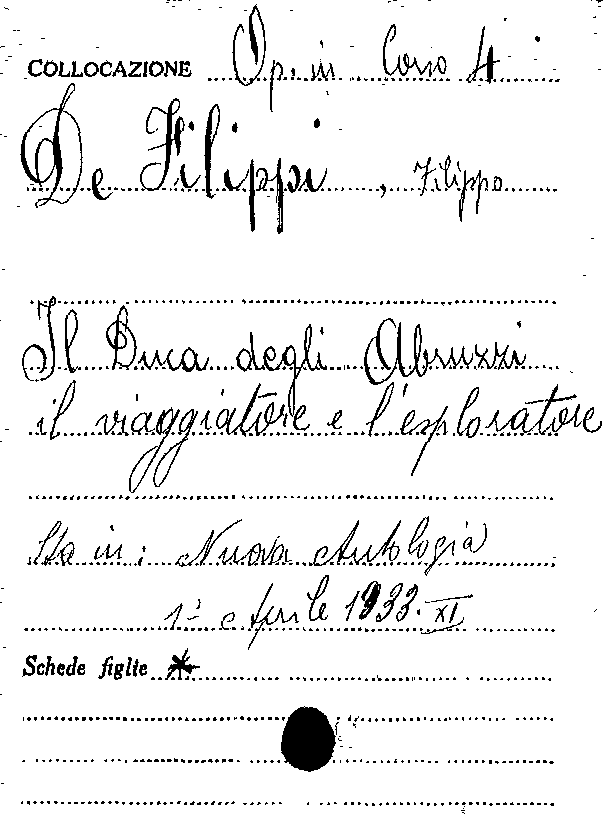 COLLOCAZIONE Op. in Corso 4
De Filippi, Filippo
Il Duca degli Abruzzi
il viaggiatore e l'esploratore
Sta in: Nuova Antologia
1° Aprile 1933. XI
Schede figlie *